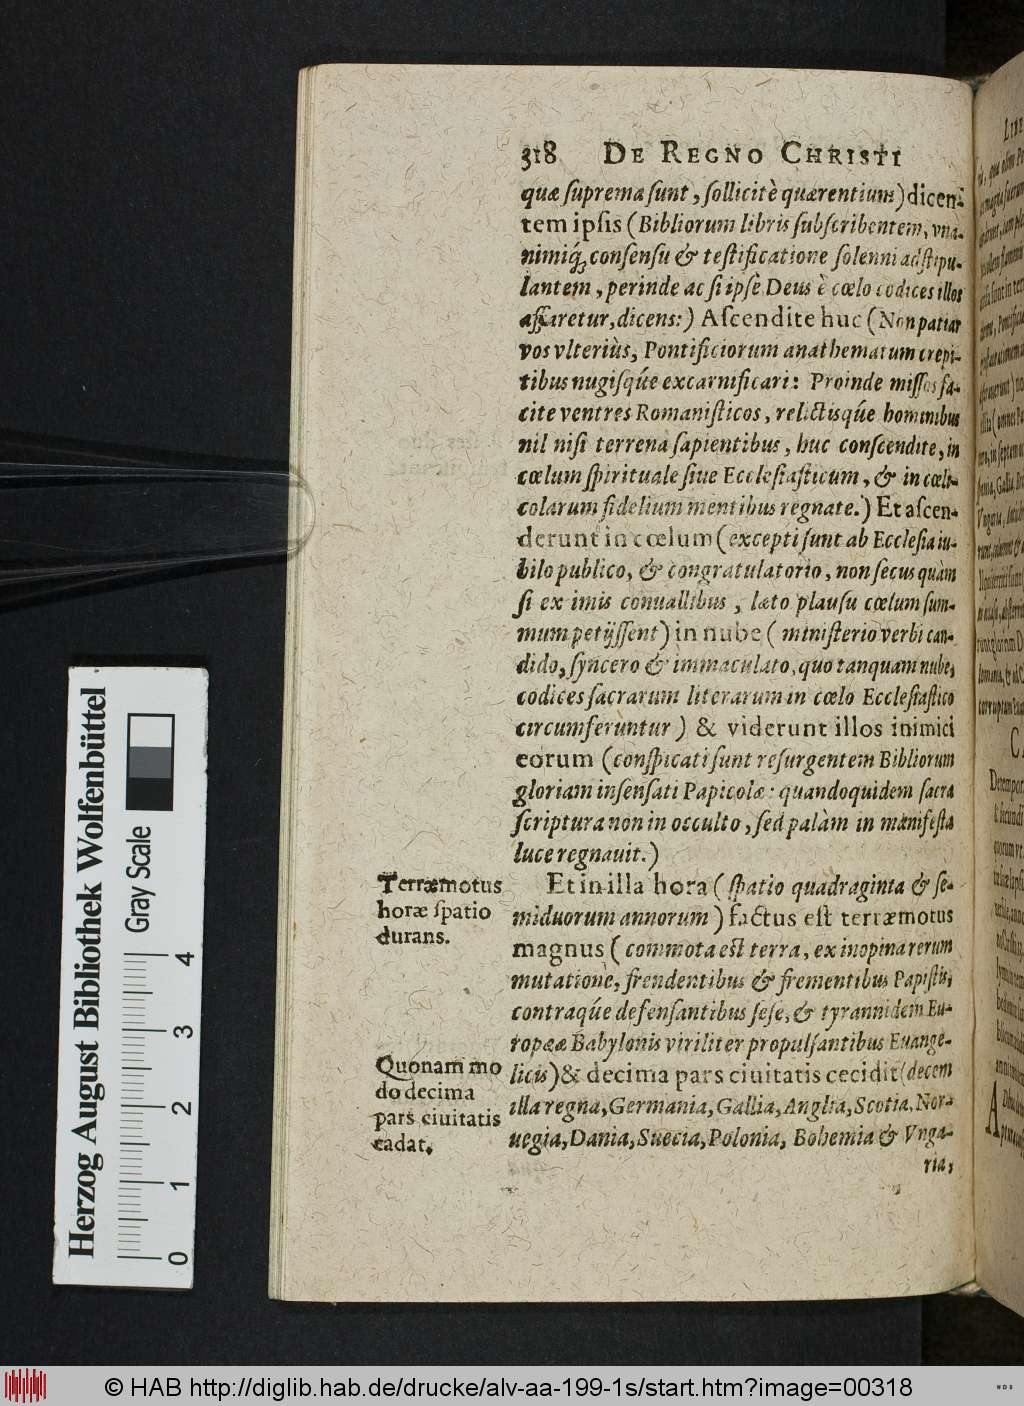 318 DE REGNO CHRISTI
quæ ſuprema ſunt, ſollicitè quærentium) dicen-
tem ipſis (Bibliorum libris ſubſcribentem, vna-
nimiq́; conſenſu & teſtificatione ſolenni adſtipu-
lantem, perinde ac ſi ipſe Deus è cœlo codices illos
affaretur, dicens:) Aſcendite huc (Non patiar
vos vlteriùs, Pontificiorum anathematum crepi-
tibus nugiſq́ue excarnificari: Proinde miſſos fa-
cite ventres Romaniſticos, relictisq́ue hominibus
nil niſi terrena ſapientibus, huc conſcendite, in
cœlum ſpirituale ſiue Eccleſiaſticum, & in cœli-
colarum fidelium mentibus regnate.) Et aſcen-
derunt in cœlum (excepti ſunt ab Eccleſia iu-
bilo publico, & congratulatorio, non ſecus quàm
ſi ex imis conuallibus, læto plauſu cœlum ſum-
mum petijſſent) in nube (miniſterio verbi can-
dido, ſyncero & immaculato, quo tanquam nube,
codices ſacrarum literarum in cœlo Eccleſiaſtico
circumferuntur) & viderunt illos inimici
eorum (conſpicati ſunt reſurgentem Bibliorum
gloriam inſenſati Papicolæ: quandoquidem ſacra
ſcriptura non in occulto, ſed palàm in manifeſta
luce regnauit.)
Terræmotus
horæ ſpatio
durans.
Et in illa hora (ſpatio quadraginta & ſe-
miduorum annorum) factus eſt terræmotus
magnus (commota eſt terra, ex inopina rerum
mutatione, frendentibus & frementibus Papiſtis,
contraq́ue defenſantibus ſeſe, & tyrannidem Eu-
ropææ Babylonis viriliter propulſantibus Euange-
licis) & decima pars ciuitatis cecidit (decem
illa regna, Germania, Gallia, Anglia, Scotia, Nor-
uegia, Dania, Suecia, Polonia, Bohemia & Vnga-
ria,
Quonam mo
do decima
pars ciuitatis
cadat.
Herzog August Bibliothek Wolfenbüttel
Gray Scale
0 1 2 3 4
© HAB http://diglib.hab.de/drucke/alv-aa-199-1s/start.htm?image=00318